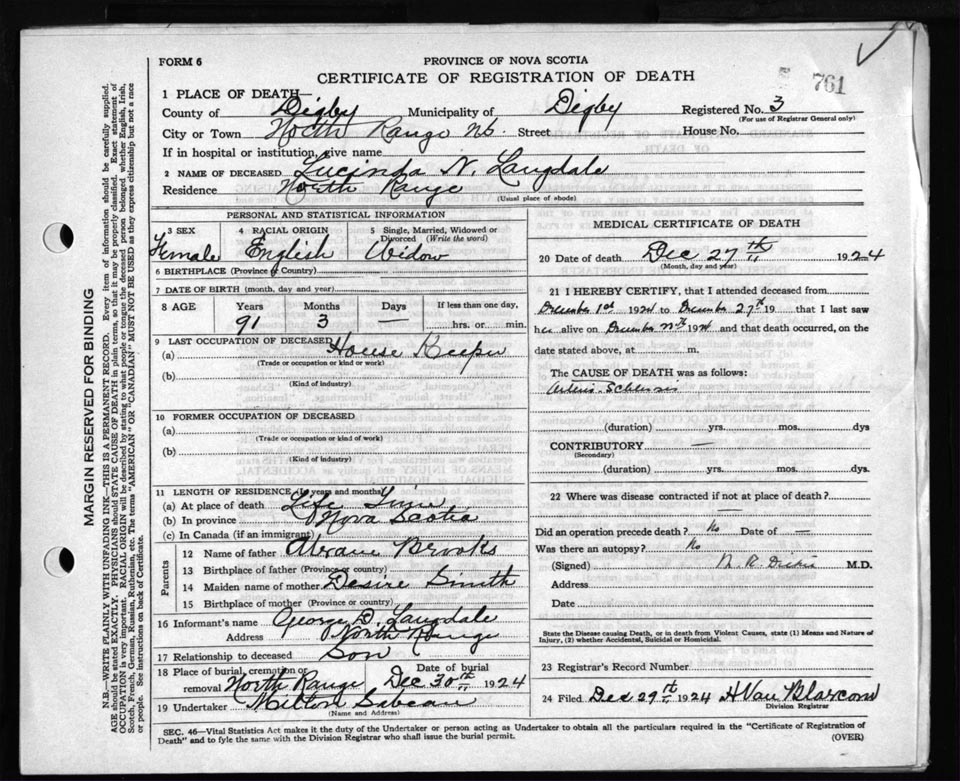 FORM 6
PROVINCE OF NOVA SCOTIA
CERTIFICATE OF REGISTRATION OF DEATH
761
1 PLACE OF DEATH—
County of Digby Municipality of Digby Registered No. 3
(For use of Registrar General only)
City or Town North Range NS. Street House No.
If in hospital or institution, give name
2 NAME OF DECEASED Lucinda N. Langdale
Residence North Range
(Usual place of abode)
PERSONAL AND STATISTICAL INFORMATION
3 SEX 4 RACIAL ORIGIN 5 Single, Married, Widowed or Divorced (Write the word)
Female English Widow
6 BIRTHPLACE (Province or Country)
7 DATE OF BIRTH (month, day and year)
8 AGE Years Months Days If less than one day,
91 3 — hrs. or min.
9 LAST OCCUPATION OF DECEASED
(a) House Keeper
(Trade or occupation or kind or work)
(b)
(Kind of industry)
10 FORMER OCCUPATION OF DECEASED
(a)
(Trade or occupation or kind of work)
(b)
(Kind of industry)
11 LENGTH OF RESIDENCE (In years and months)
(a) At place of death Life Time
(b) In province Nova Scotia
(c) In Canada (if an immigrant)
Parents
12 Name of father Abram Brooks
13 Birthplace of father (Province or country)
14 Maiden name of mother Desire Smith
15 Birthplace of mother (Province or country)
16 Informant's name George D. Langdale
Address North Range
17 Relationship to deceased Son
18 Place of burial, cremation or removal North Range Date of burial Dec 30th 1924
19 Undertaker Milton Sabean
(Name and Address)
MEDICAL CERTIFICATE OF DEATH
20 Date of death Dec 27th 1924
(Month, day and year)
21 I HEREBY CERTIFY, that I attended deceased from
December 1st 1924 to December 27th 19 that I last saw
her alive on December 1924 and that death occurred, on
date stated above, at m.
The CAUSE OF DEATH was as follows:
Arterio Schlerosis
(duration) yrs. mos. dys
CONTRIBUTORY —
(Secondary)
(duration) yrs. mos. dys.
22 Where was disease contracted if not at place of death? —
Did an operation precede death? No Date of —
Was there an autopsy? No
(Signed) M.D.
Address
Date
State the Disease causing Death, or in death from Violent Causes, state (1) Means and Nature of
Injury, (2) whether Accidental, Suicidal or Homicidal.
23 Registrar's Record Number
24 Filed Dec 29th 1924 H Van Blarcom
Division Registrar
SEC. 46—Vital Statistics Act makes it the duty of the Undertaker or person acting as Undertaker to obtain all the particulars required in the "Certificate of Registration of
Death" and to fyle the same with the Division Registrar who shall issue the burial permit.
(OVER)
MARGIN RESERVED FOR BINDING
N.B.—WRITE PLAINLY WITH UNFADING INK—THIS IS A PERMANENT RECORD. Every item of information should be carefully supplied.
AGE should be stated EXACTLY. PHYSICIANS should STATE CAUSE OF DEATH in plain terms, so that it may be properly classified. Exact statement of
OCCUPATION is very important. RACIAL ORIGIN will be described by stating to what people or tongue the deceased person belonged whether English, Irish,
Scotch, French, German, Russian, Ruthenian, etc. The terms "AMERICAN" OR "CANADIAN" MUST NOT BE USED as they express citizenship but not a race
or people. See instructions on back of Certificate.